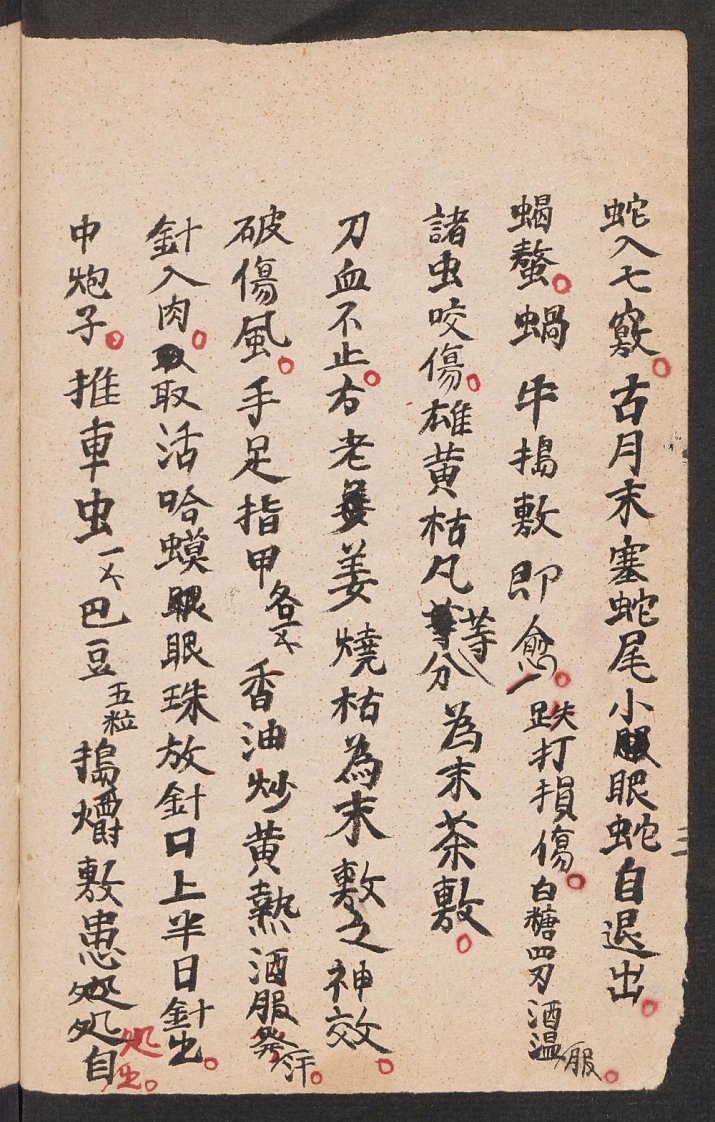 蛇入七竅。古月末塞蛇尾小眼眼蛇自退出。
蝎螫。蝸牛搗敷即愈。跌打損傷。白糖四刃酒温服。
諸虫咬傷。雄黄枯凡等分為末茶敷。
刀血不止。右老姜燒枯為末敷之神效。
破傷風。手足指甲各五不香油炒黄熱酒服發汗。
針入肉。取活哈蟆眼眼珠放針口上半日針出。
中炮子。推車虫一个巴豆五粒搗爛敷患处处自出。
三